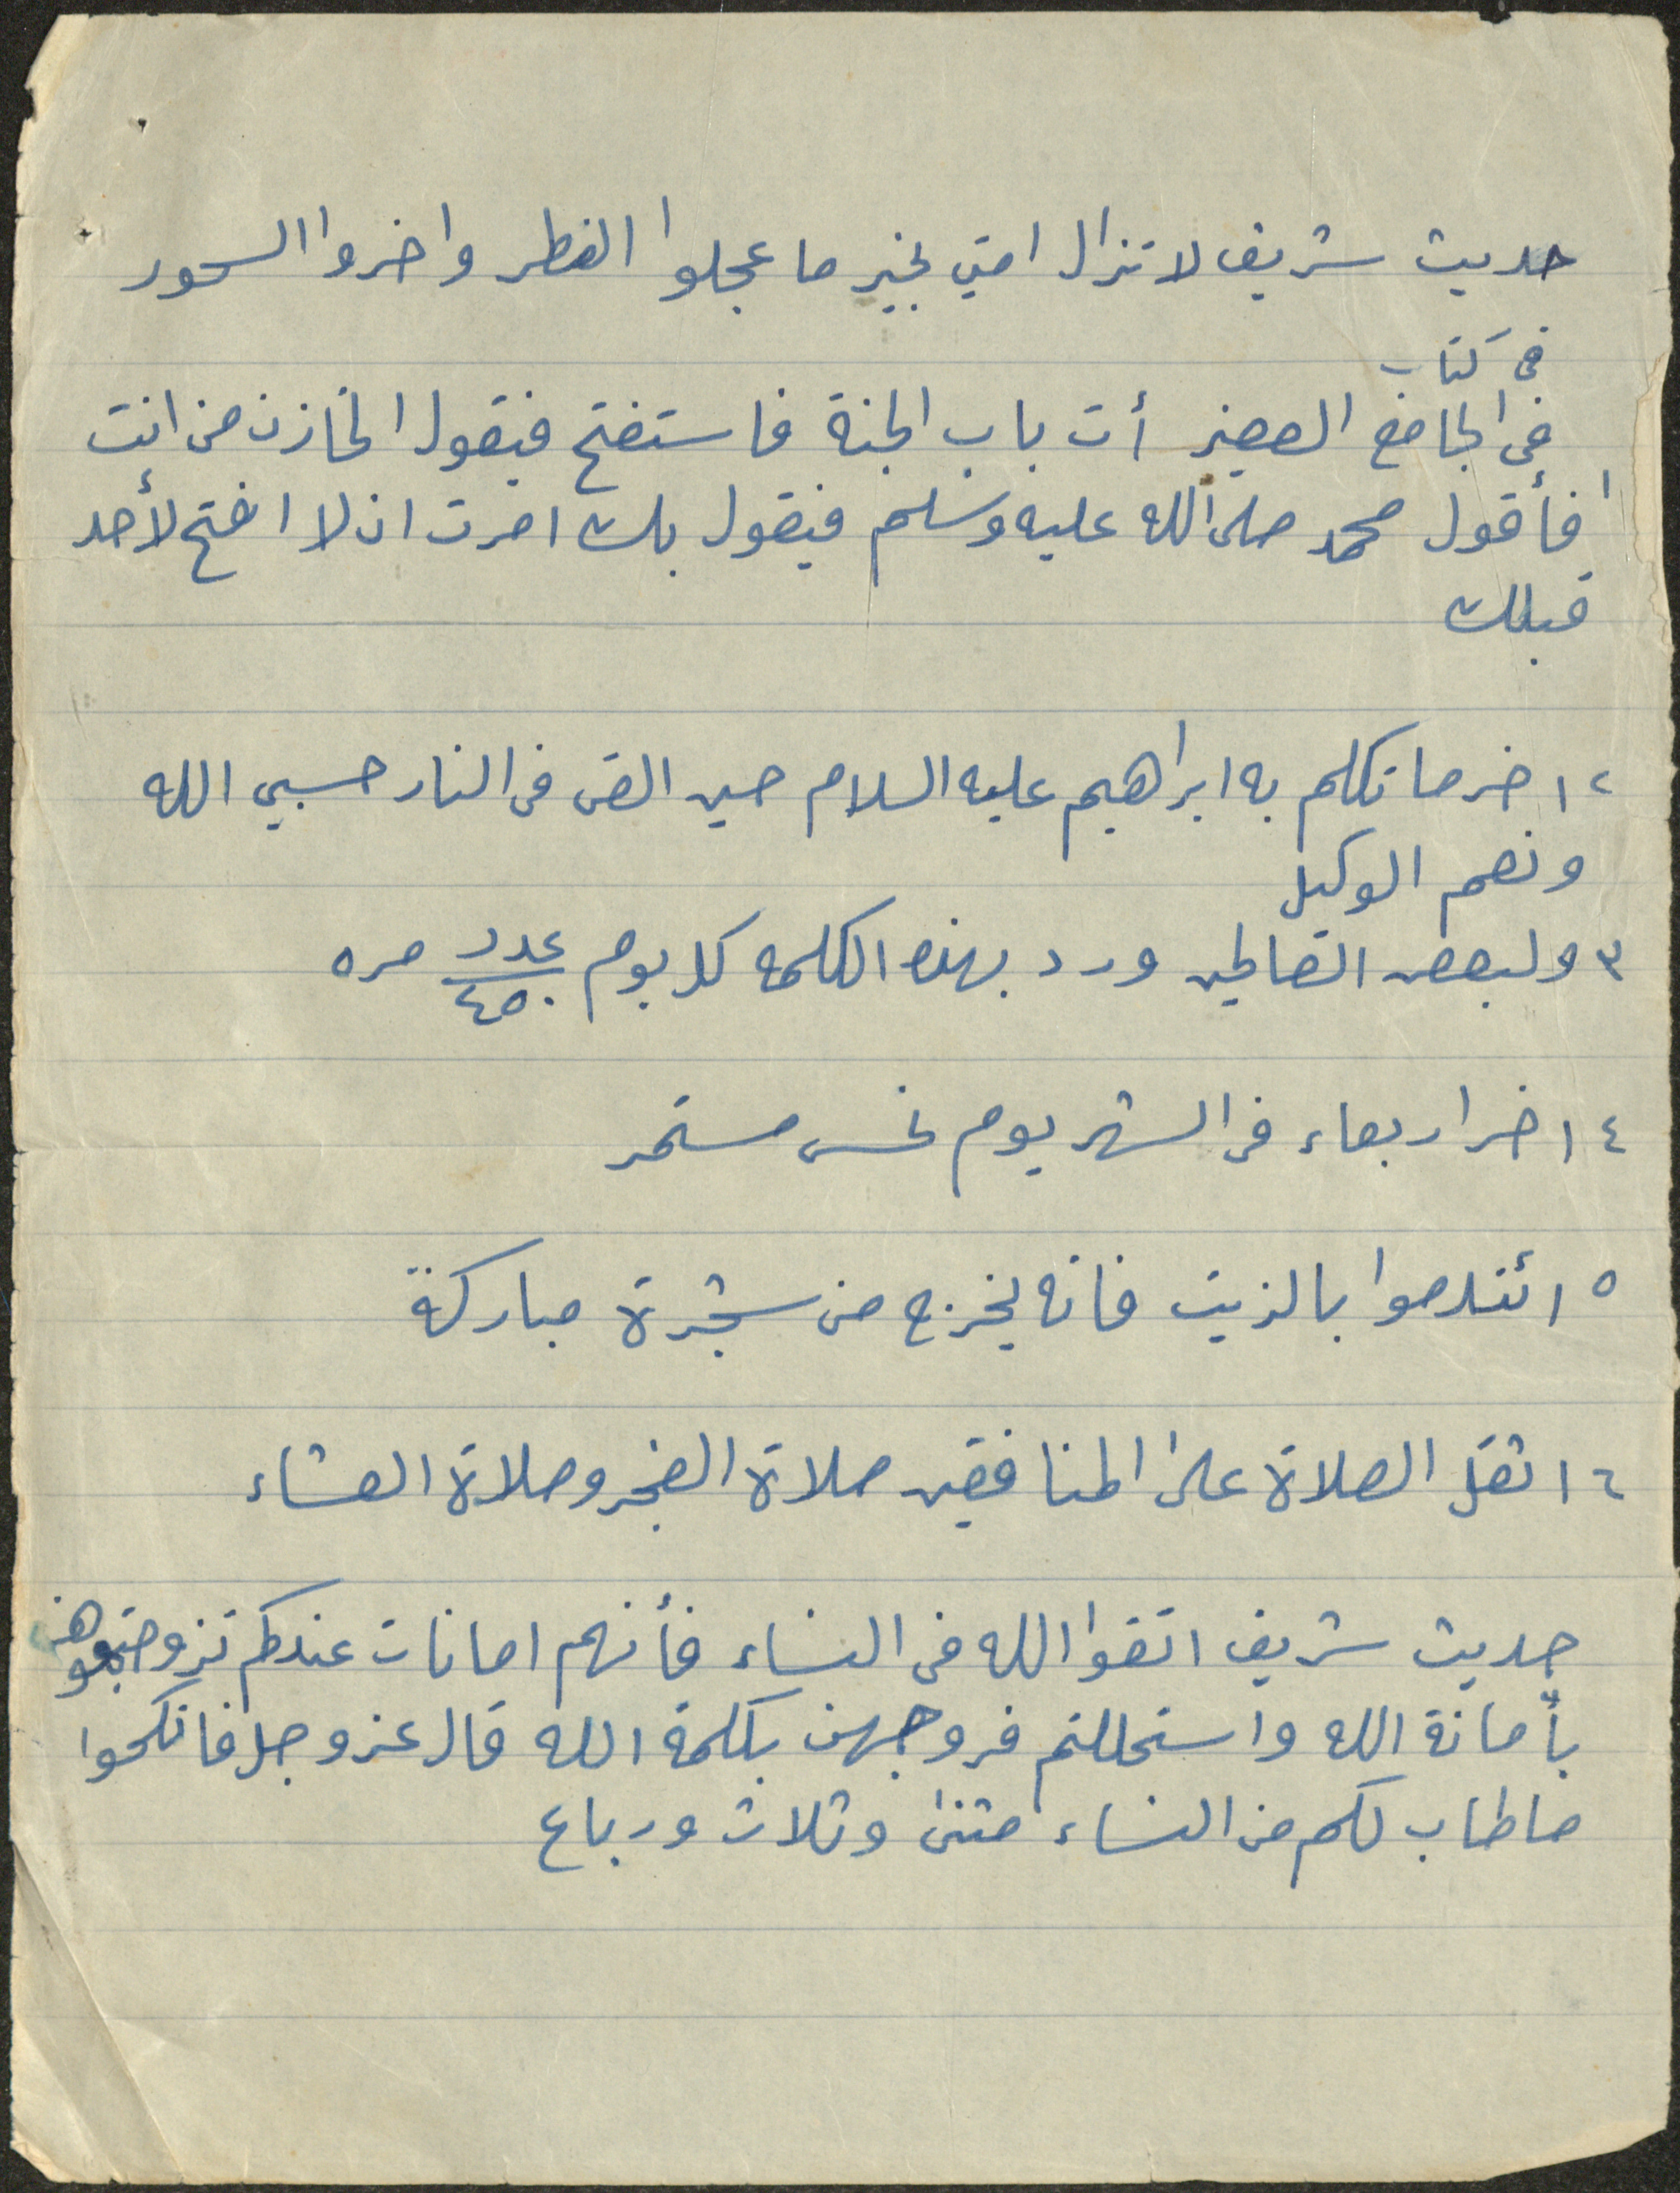 حديث شريف لا تزال امتي بخير ما عجلوا الفطر واخروا السحور
في كتاب
في الجامع الصغير أت باب الجنة فاستفتح فيقول الخازن من انت
١ فأقول محمد صلى الله عليه وسلم فيقول بك امرت ان لا افتح لأحد
قبلك
٢ اخر ما تكلم به ابراهيم عليه السلام حين القى فى النار حسبي الله
ونعم الوكيل
٣ ولبعض الصالحين ورد بهذه الكلمه كل يوم عدد ٤٥٠ مره
٤ اخر اربعاء فى الشهر يوم نحس مستمر
٥ ائتدموا بالزيت فانه يخرج من شجرة مباركة
٦ اثقل الصلاة على المنافقين صلاة الفجر وصلاة العشاء
حديث شريف اتقوا الله في النساء فأنهم امانات عندكم تزوجتموهن
بأمانة الله واستحللتم فروجهن بكلمة الله قال عز وجل فانكحوا
ما طاب لكم من النساء مثنى وثلاث ورباع